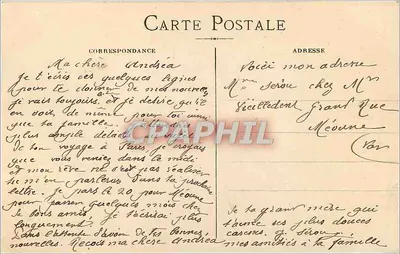 CARTE POSTALE
CORRESPONDANCE
Ma chère Andréa
Je t'écris ces quelques lignes
pour te donner de mes nouvelles
je vais toujours et je désire qu'il
en soit de même pour toi ainsi
que ta famille
plus ample détail
de ton voyage à Paris je croyais
que vous veniez dans le midi
et mon rêve ne s'est pas réaliser
tu m'en parleras dans ta prochaine
lettre. Je pars le 20 pour Méoune
pour passer quelques mois chez
de bons amis, je t'écrirai plus
longuement.
dans l'attente d'avoir de tes bonnes
nouvelles. Reçois ma chère Andréa
ADRESSE
Voici mon adresse
Mme Sérou chez Mr
Vieilledent Grand Rue
Méoune
Var
de ta grand mère qui
t'envoie ses plus douces
caresses. J. Sérou
mes amitiés à la famille
CPAPHIL.COM